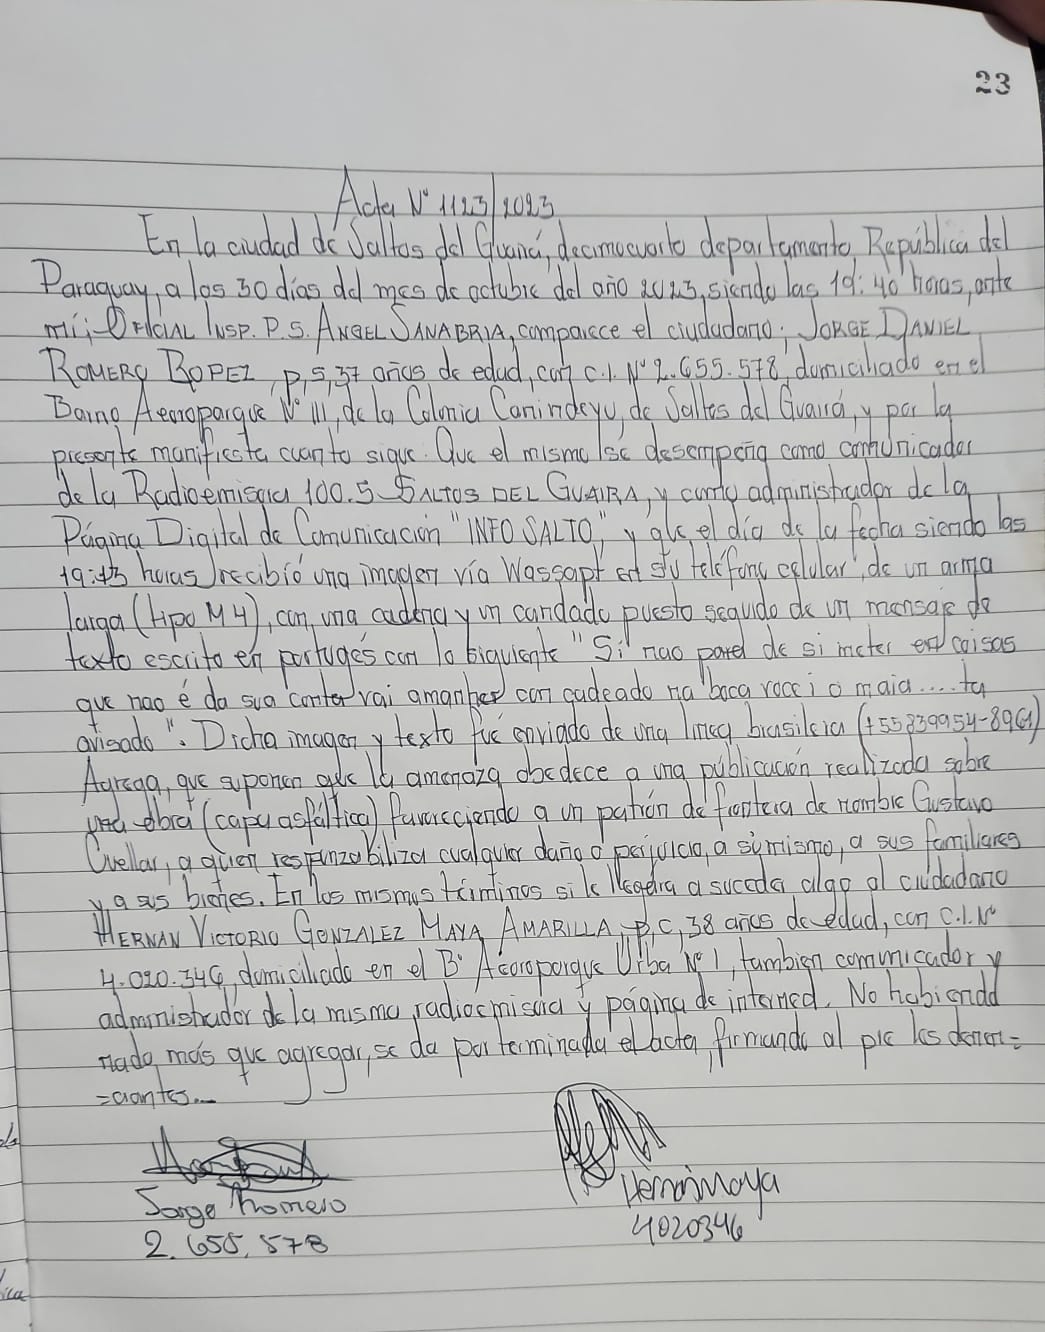 23
Acta Nº 1123/2023
En la ciudad de Saltos del Guairá, decimocuarto departamento, República del
Paraguay, a los 30 días del mes de octubre del año 2023, siendo las 19:40 horas, ante
mí; OFICIAL INSP. P.S. ANGEL SANABRIA, comparece el ciudadano: JORGE DANIEL
ROMERO BOPEZ, p,s, 37 años de edad, con c.i. Nº 2.655.578, domiciliado en el
Barrio Aeroparque Nº III, de la Colonia Canindeyu, de Saltos del Guairá, y por la
presente manifiesta cuanto sigue. Que el mismo se desempeña como comunicador
de la Radioemisora 100.5 SALTOS DEL GUAIRA, y como administrador de la
Página Digital de Comunicación "INFO SALTO", y que el día de la fecha siendo las
19:13 horas recibió una imagen vía Wassapt en su teléfono celular, de un arma
larga (tipo M4), con una cadena y un candado puesto seguido de un mensaje de
texto escrito en portugés con lo siguiente "Si nao parel de si meter en coisas
que nao é da sua conter vai amanher con cadeado na boca voce i o maia.... ta
avisado". Dicha imagen y texto fue enviado de una linea brasileira (+55839954-8961)
Agrega, que suponen que la amenaza obedece a una publicación realizada sobre
una obra (capa asfáltica) favoreciendo a un patrón de frontera de nombre Gustavo
Cuellar, a quien responzabiliza cualquier daño o perjuicio, a si mismo, a sus familiares
y a sus bienes. En los mismos términos si le llegara a suceder algo al ciudadano
HERNAN VICTORIO GONZALEZ MAYA AMARILLA p.c, 38 años de edad, con C.I. Nº
4.020.346, domiciliado en el Bº Aeroparque Urba Nº 1, tambien comunicador y
administrador de la misma radioemisora y página de interned. No habiendo
nada más que agregar, se da por terminada el acta, firmando al pie los denun=
=ciantes...
Jorge Romero
Hernán Maya
2.655.578
4020346